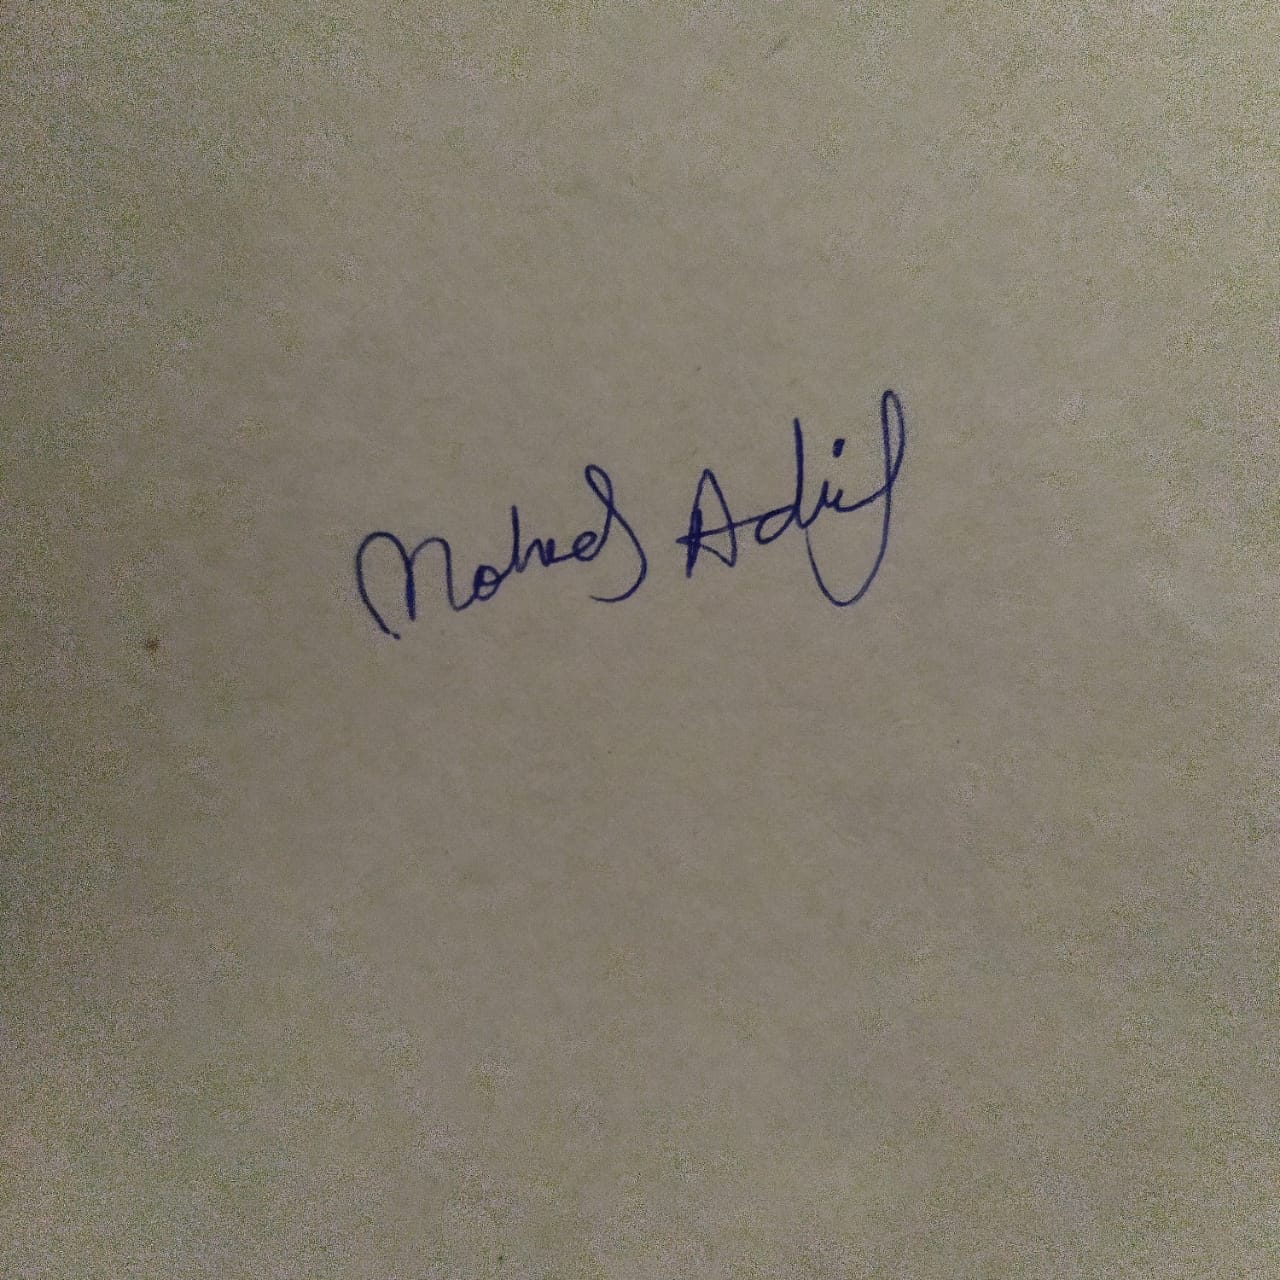 Mohd Adil